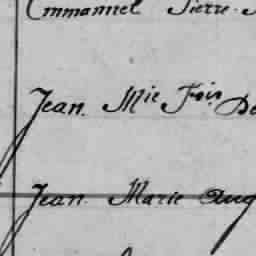 Emmanuel Pierre
Jean Mie Fois De
Jean Marie Aug